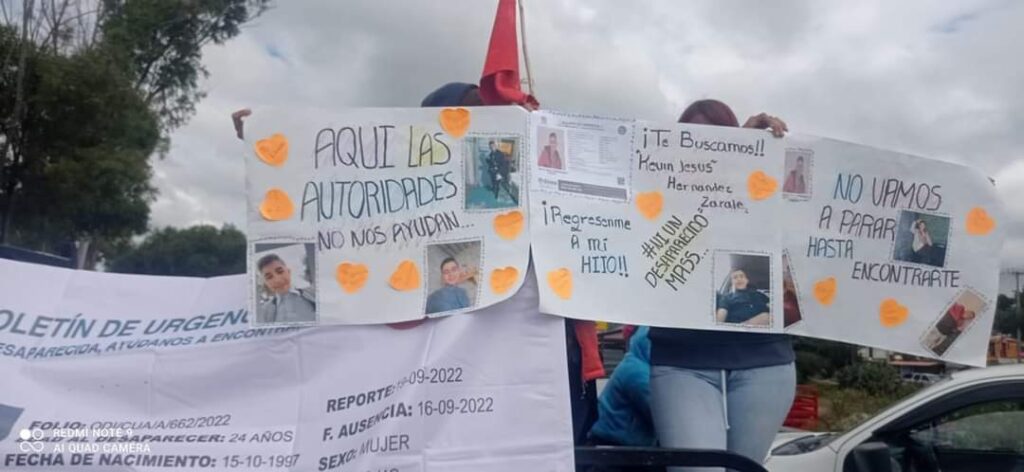 AQUI LAS
AUTORIDADES
NO NOS AYUDAN...
¡Te Buscamos!!
"Kevin Jesús"
Hernandez
Zarate
¡Regresenme
A mi
HIJO!!
#UN
DESAPARECIDO
MASS...
NO VAMOS
A PARAR
HASTA
ENCONTRARTE
OLETÍN DE URGENC
DESAPARECIDA, AYÚDANOS A ENCONTRA
FOLIO: /662/2022
APARECER: 24 AÑOS
FECHA DE NACIMIENTO: 15-10-1997
REPORTE: 19-09-2022
F. AUSENCIA: 16-09-2022
SEXO: MUJER
REDMI NOTE 9
AI QUAD CAMERA